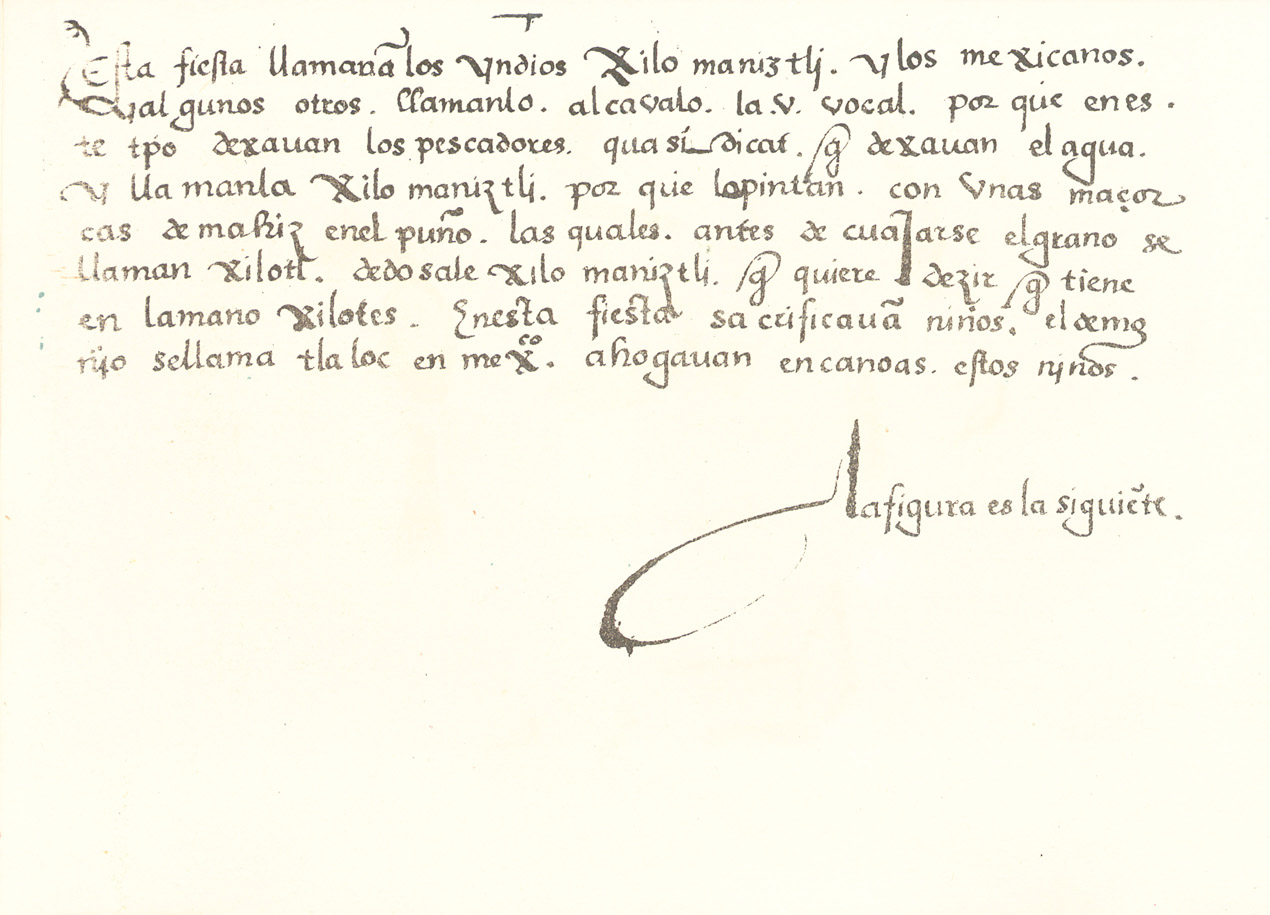 Esta fiesta llamanã los yndios Xilo maniztlj. y los mexicanos.
y algunos otros. llamanlo. alcavalo. la.v. vocal. por que en es.
te tpõ dexauan los pescadores. quasi dicat. q̃ dexauan el agua.
y llamanla Xilo maniztlj. por que lo pintan. con vnas maçor
cas de mahiz enel puño. las quales. antes de cuajarse el grano se
llaman xilotl. dedo sale xilo maniztlj. q̃ quiere dezir q̃ tiene
en la mano xilotes. Enesta fiesta sacrificauã niños. el demo
njo se llama tlaloc en mexco. ahogauan en canoas. estos njños.
la figura es la siguiẽte.